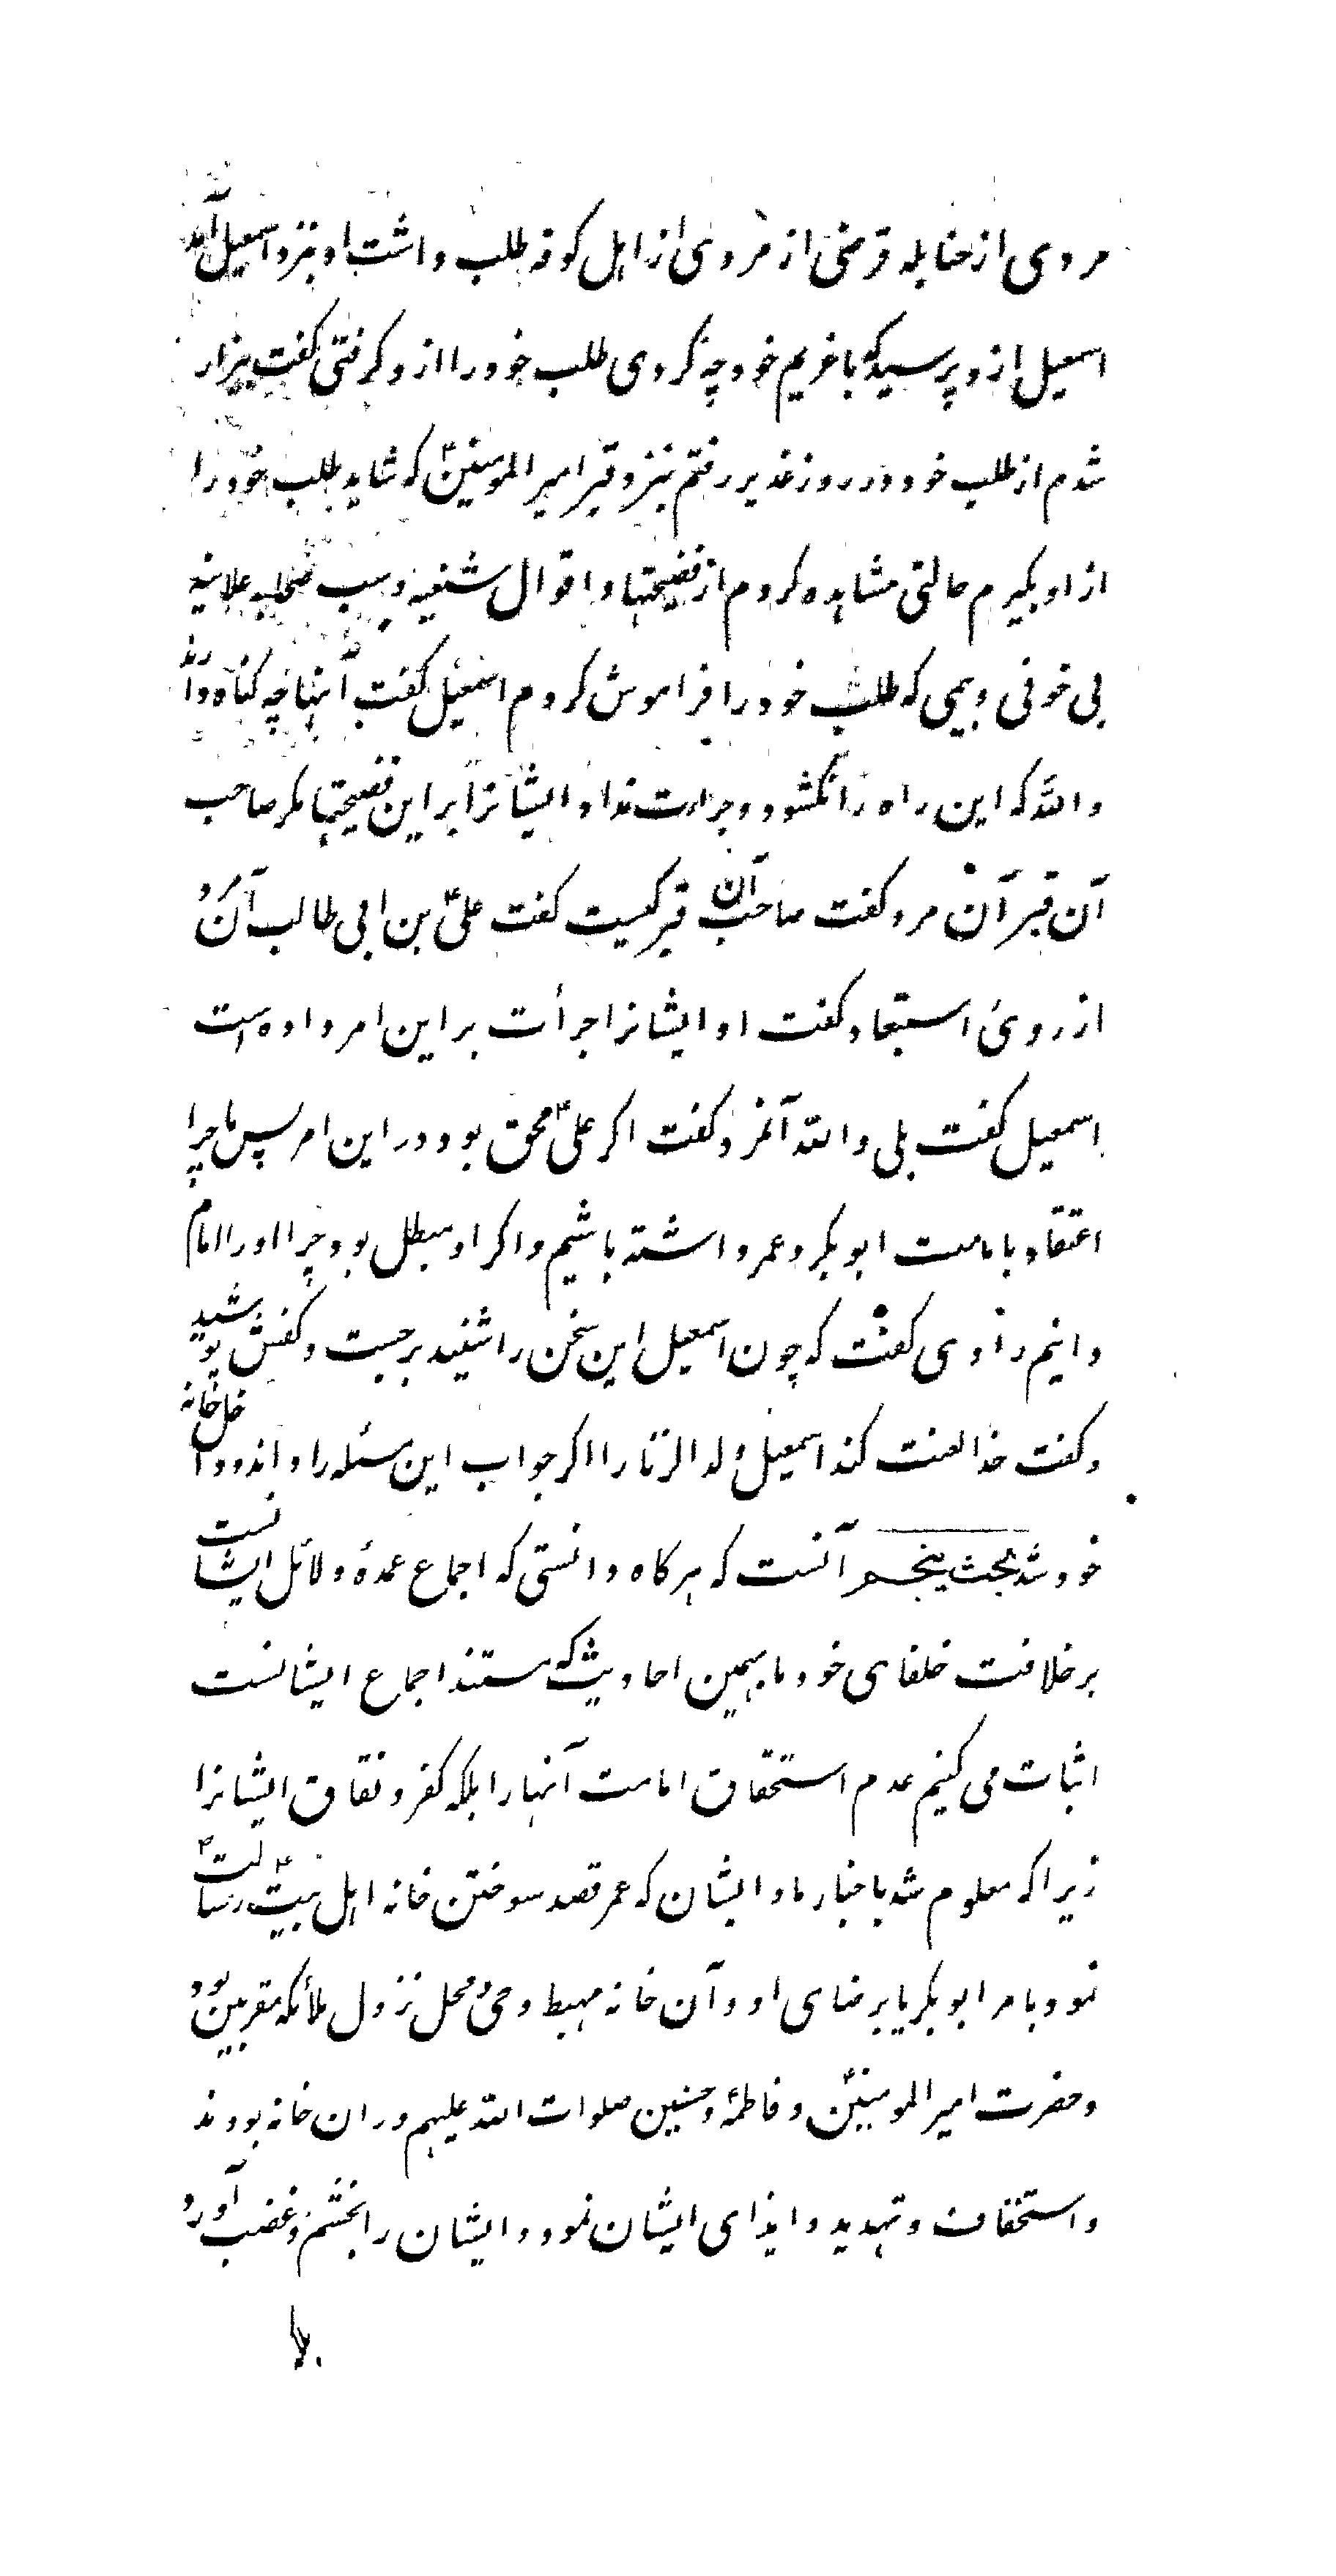 مردی از حنابله قرضی از مردی از اهل کوفه طلب داشت او بنزد اسمعیل آمد
اسمعیل ازو پرسید که با غریم خود چه کردی طلب خود را ازو کرفتی کفت بیزار
شدم از طلب خود در روز غدیر رفتم بنزد قبر امیر المومنینؑ که شاید طلب خود را
از او بکیرم حالتی مشاهده کردم از فضیحتها و اقوال شنیعه و سب صحابه علانیه
بی خوفی و بیمی که طلب خود را فراموش کردم اسمعیل کفت آنها چه کناه دارند
والله که این راه را نکشود و جرات نداد ایشانرا بر این فضیحتها مکر صاحب
آن قبر آن مرد کفت صاحب آن قبر کیست کفت علیؑ بن ابی طالب آن مرد
از روی استبعاد کفت او ایشانرا جرأت بر این امر داده است
اسمعیل کفت بلی والله آنمرد کفت اکر علیؑ محق بود در این امر پس ما چرا
اعتقاد بامامت ابوبکر و عمر داشته باشیم و اکر او مبطل بود چرا او را امام
دانیم راوی کفت که چون اسمعیل این سخن را شنید برجست و کفش پوشید
و کفت خدا لعنت کند اسمعیل ولد الزنا را اکر جواب این مسئله را داند و داخل خانه
خود شد بحث پنجم آنست که هر کاه دانستی که اجماع عمدهٔ دلائل ایشانست
بر خلافت خلفای خود ما بهمین احادیث که مستند اجماع ایشانست
اثبات می کنیم عدم استحقاق امامت آنها را بلکه کفر و نفاق ایشانرا
زیرا که معلوم شد باخبار ما و ایشان که عمر قصد سوختن خانه اهل بیتؑ رسالتؐ
نمود بامر ابوبکر یا برضای او و آن خانه مهبط وحی و محل نزول ملائکه مقربین بود
و حضرت امیر المومنینؑ و فاطمهؑ و حسنین صلوات الله علیهم در ان خانه بودند
و استخفاف و تهدید و ایذای ایشان نمود و ایشان را بخشم و غضب آورد